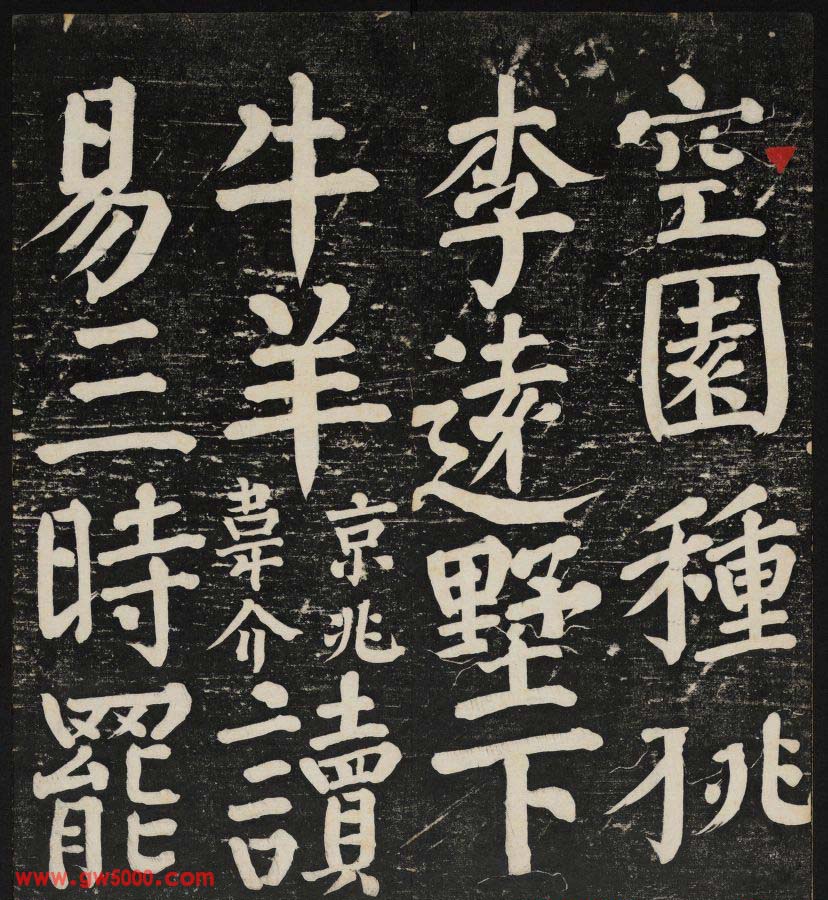 空園種桃
李遠墅下
牛羊京兆韋介讀
易三時罷
www.gw5000.com